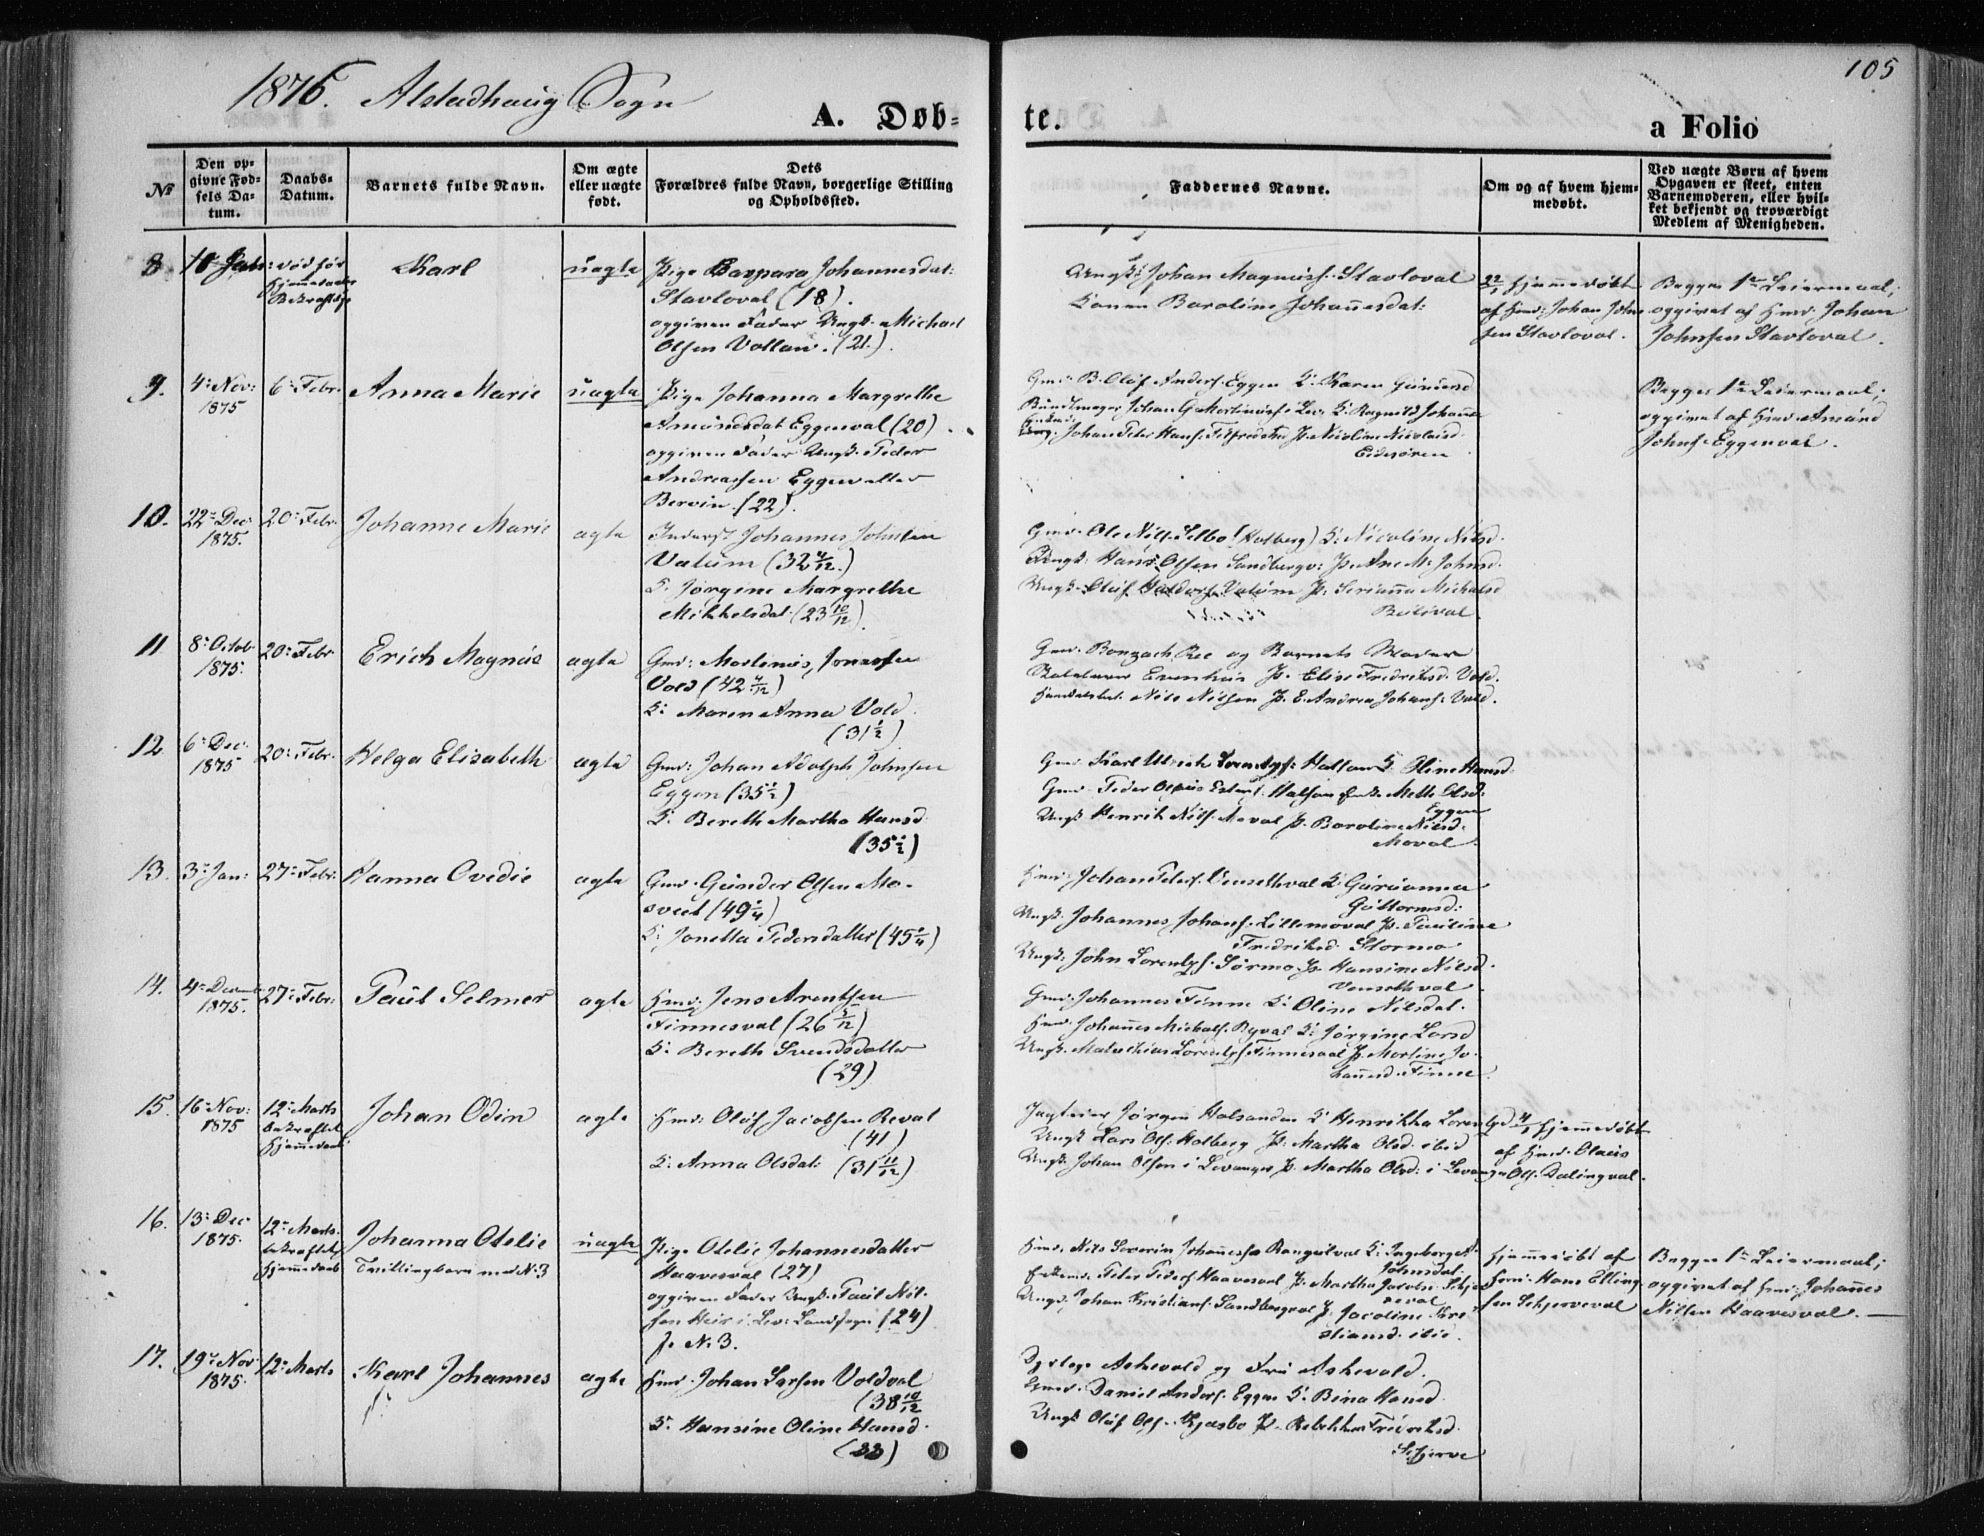 105
1876. Alstadhaug Sogn
A. Døb-
te.
a Folio
№
Den op-
givne Fød-
sels Da-
tum.
Daabs-
Datum.
Barnets fulde Navn.
Om ægte
eller uægte
født.
Dets
Forældres fulde Navn, borgerlige Stilling
og Opholdssted.
Faddernes Navne.
Om og af hvem hjem-
medøbt.
Ved uægte Børn af hvem
Opgaven er skeet, enten
Barnemoderen, eller hvil-
ket bekjendt og troværdigt
Medlem af Menigheden.
8
Jan:
død før
Hjemmedaaben
Bekræftelse
Karl
uægte
Pige Barpara Johannesdat:
Stavloval (18).
opgiven Fader Ungk. Michael
Olsen Vollan. (21.)
Ungk: Johan Magnusf. Stavloval
Konen Baroline Johañesdat:
22/1 hjemmedøbt
af Gmd: Johan John
sen Stavloval.
Begges 1ste Leiermaal,
opgivet af Gmd. Johan
Johnsen Stavloval.
9.
4: Nov:
1875
6: Febr.
Anna Marie
uægte
Pige Johanna Margrethe
Amundsdat Eggenval (20)
opgiven Fader Ungk. Peder
Andreassen Eggen eller
Bervin. (22).
Gmd. B. Oluf Anders. Eggen K. Karen Gundersd
Johan Peter Hans. P. Nicoline Nicolaisd.
Eidsøren
Begges 1ste Leiermaal;
opgivet af Hmd. Amund
Johns. Eggenval.
10.
22: Dec:
1875.
20: Febr.
Johanne Marie
ægte
Inderst Johannes Johnsen
Valum (32 4/12)
K. Jørgine Margrethe
Mikkelsdat. (23 10/12)
Gmd. Ole Nils. Selbo (Holberg) K. Nicoline Nilsd.
Ungk. Hans Olsen Sandbergv: P. Ane M. Johnsd.
Ungk. Oluf Valum P. Serianna Michalsd
11
8: Octob
1875.
20: Febr
Erich Magnus
ægte
Gmd: Martinus Jonassen
Vold (42 4/12)
K: Maren Anna Vold.
(31 1/2)
Gmd. Bonsach Ree og Barnets Moder
Evenhus P. Elise Fredriksd. Vold.
Nils Nilsen P. E. Andrea Johans: Vold.
12
6: Dec.
1875
20: Febr.
Helga Elisabeth
ægte
Gmd: Johan Adolph Johnsen
Eggen (35 1/2)
K. Bereth Martha Hansd
(35 1/2)
Gmd. Karl Ulrich Lorentzs. Halsan K. Oline Hansd:
Gmd. Peder Halsan Mette Olsd.
Eggen
Ungk Henrik Nils. Moval P. Baroline Nilsd.
Moval.
13.
3: Jan:
27: Febr:
Hanna Ovedie
ægte
Gmd. Gunder Olsen Mo-
sveet (49 1/4)
K. Jonetta Pedersdatter (45 1/4)
Johan Peters. Vensethval K. Gurianna
Guttormsd:
Ungk. Johannes Johans. Littemoval P. Pauline
Fredriksd. Stormo
Ungk. John Lorentzs. Sørmo P. Hansine Nilsd.
Vensethval
14.
1875.
27: Febr:
Paul Selmer
ægte
Hmd: Jens Arentsen
Finnesval (26 5/12)
K: Bereth Svendsdatter
(29)
Gmd. Johannes Finne K. Oline Nilsdat.
Hmd. Johañes Michals. Byval K. Jørgine Larsd
Ungk. Mathias Lorentzs Finnesval P. Martine Jo-
hañesd. Finne.
15.
16: Nov:
1875
12: Marts
bekræftet
Hjemmedaab
Johan Odin
ægte
Hmd: Oluf Jacobsen Reval
(41)
K. Anna Olsdat: (31 11/12)
Jægteier Jørgen Halsanden K. Henrikka Lorentzd
Ungk Lars Ols. Holberg P. Martha Olsd. ibid
Ungk. Johan Olsen i Levanger P. Martha Olsd: i Levanger
hjemmedøbt
af Hmd. Olaus
Ols. Dalingval.
16.
13: Dec
1875.
12: Marts.
bekræftet
Hjemmedaab
Johanna Otelie
Tvillingbarn med N: 3
uægte
Pige Otelie Johannesdatter
Haavesval (27)
opgiven Fader Ungk. Paul Nil-
sen Heir i Lev: Landsogn (24)
fr N: 3.
Hmd. Nils Severin Johañessen K. Ingeborg
Johnsdat:
Enkemd: Peter Peders. Haavesval P. Martha Jacobs.
Ungk. Johan Kristians. Sandbergval P. Jacoline Kri-
stiansd. ibid.
hjemmedøbt af
Hmd: Hans Elling-
sen Schjerveval
Begges 1ste Leiermaal;
opgivet af Hmd. Johañes
Nilsen Haavesval.
17.
19: Nov
1875.
12: Marts
Karl Johannes
ægte
Hmd. Johan Larsen Voldval
(38 10/12
K. Hansine Oline Hansd.
(33)
Askevold og Fru Askevold.
Gmd. Daniel Anders. Eggen K. Bina Hansd.
Ungk Oluf Ols. P. Rebekka Fredriksd.
Schjerve